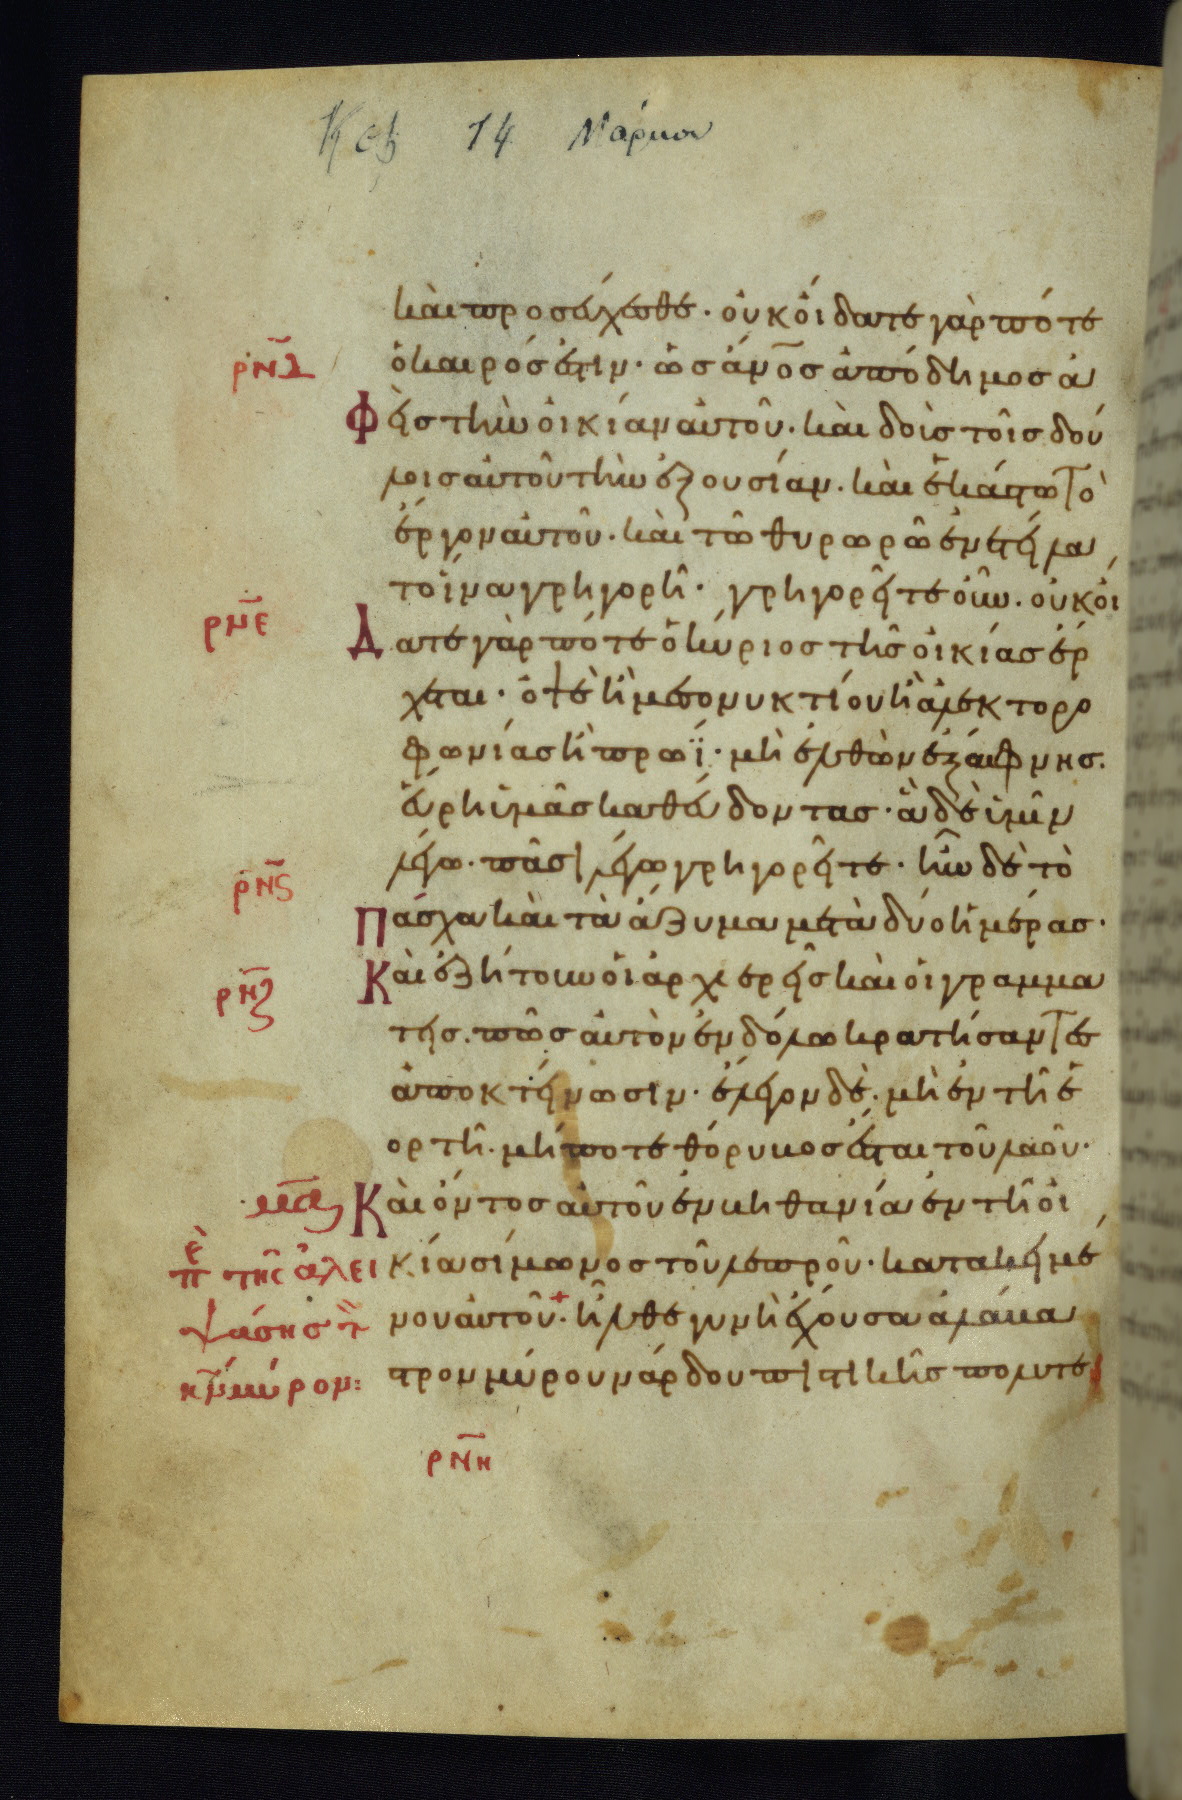 Κεφ 14 Μάρκου
καὶ προσεύχεσθε· οὐκ οἴδατε γὰρ πότε
ρνδ
ὁ καιρός ἐστιν· ὡς ἄν̅ο̅σ̅ ἀπόδημος ἀ
φεὶς τὴν οἰκίαν αὐτοῦ· καὶ δοὺς τοῖς δού
λοις αὐτοῦ τὴν ἐξουσίαν· καὶ ἑκάστω τὸ
ἔργον αὐτοῦ· καὶ τῶ θυρωρῶ ἐνετείλα
το ἵνα γρηγορῆ· γρηγορεῖτε οὖν· οὐκ οἴ
ρνε
δατε γὰρ πότε ὁ κύριος τῆς οἰκίας ἔρ
χεται· ὀψὲ ἢ μεσονυκτίου ἢ ἀλεκτορο
φωνίας ἢ πρωΐ· μὴ ἐλθὼν ἐξαίφνης·
εὕρη ὑμᾶς καθεύδοντας· ἃ δὲ ὑμῖν
λέγω· πᾶσι λέγω γρηγορεῖτε· ἦν δὲ τὸ
ρνς
Πάσχα καὶ τὰ ἄζυμα μετὰ δύο ἡμέρας·
ρνζ
Καὶ ἐζήτουν οἱ ἀρχιερεῖς καὶ οἱ γραμμα
τεῖς· πῶς αὐτὸν ἐν δόλω κρατήσαντες
ἀποκτείνωσιν· ἔλεγον δὲ· μὴ ἐν τῆ ἑ
ορτῆ· μήποτε θόρυβος ἔσται τοῦ λαοῦ·
Καὶ ὄντος αὐτοῦ ἐν βηθανία ἐν τῆ οἰ
πε τῆς ἀλει
κία σίμωνος τοῦ λεπροῦ· κατακειμέ
ψάσης τ
νου αὐτοῦ· ἦλθε γυνὴ ἔχουσα ἀλάβα
κν μύρον:
στρον μύρου νάρδου πιστικῆς πολυτε
ρνη